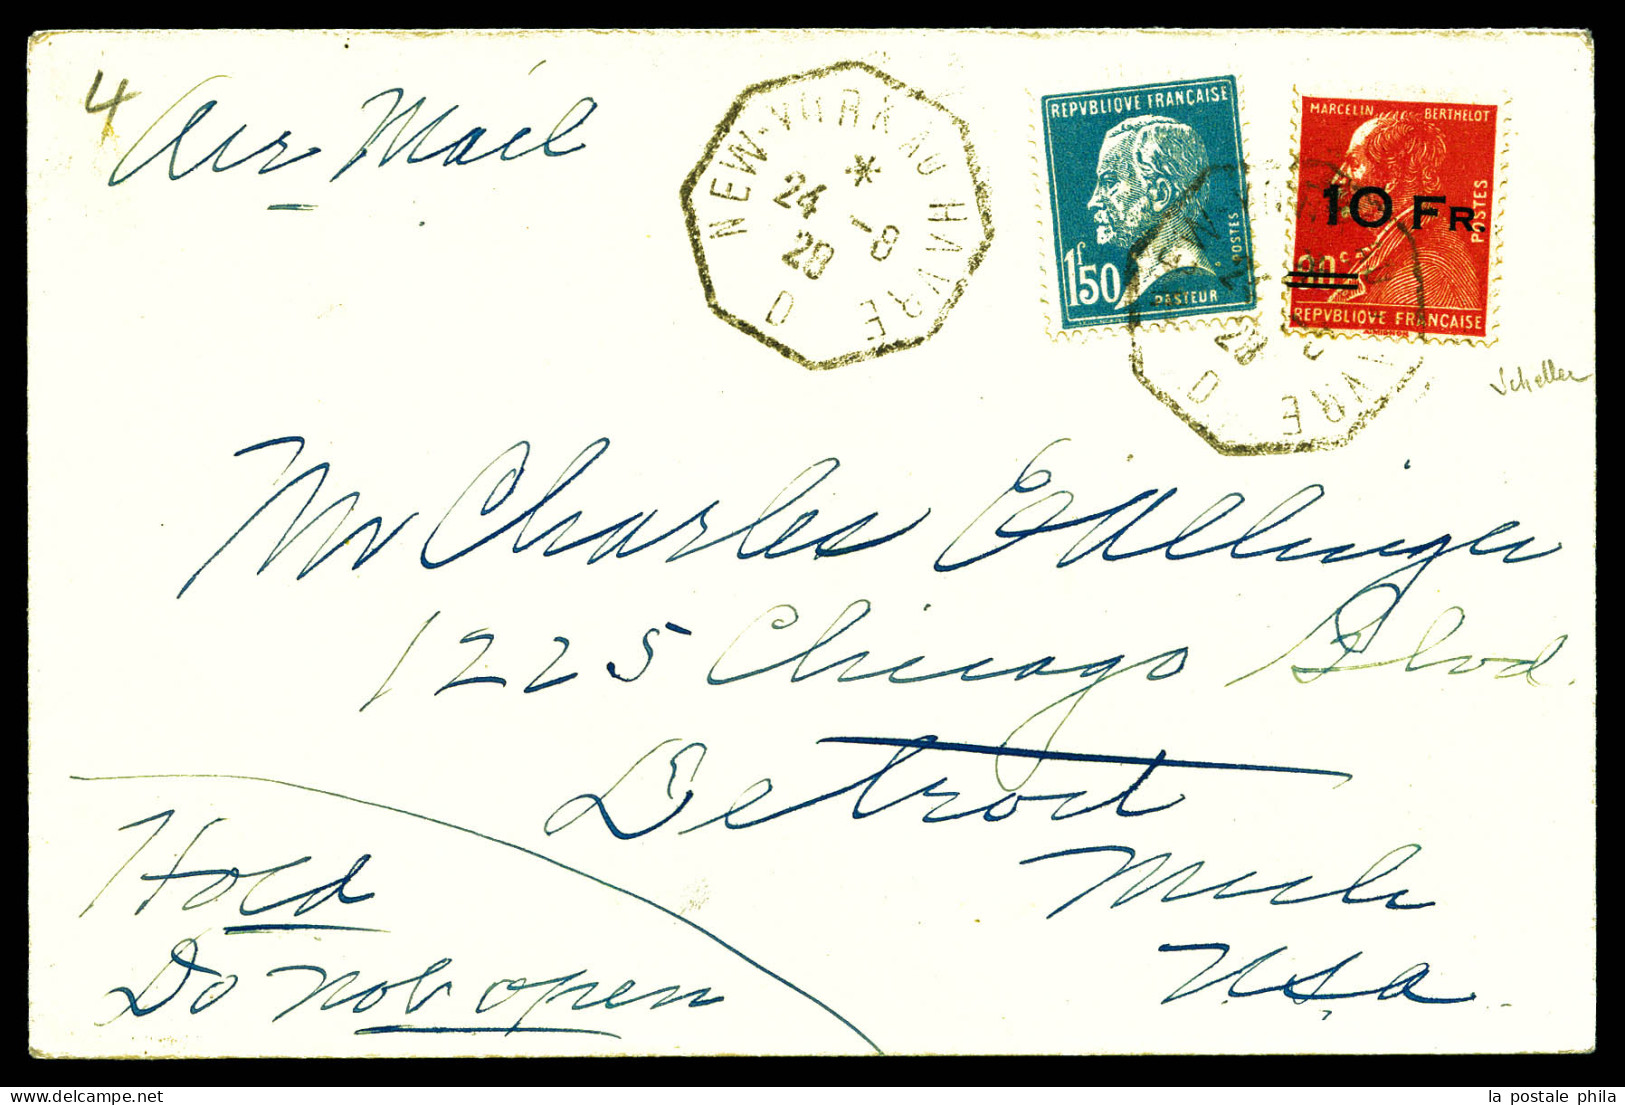 4 Air Mail
NEW-YORK AU HAVRE D
*
24 -8
28
REPVBLIQVE FRANÇAISE
1F50
POSTES
PASTEUR
MARCELIN BERTHELOT
10 FR.
90c
POSTES
REPVBLIQVE FRANÇAISE
A. MIGNON
28
AVRE D
Scheller
Mr Charles Edllinger
1225 Chicago Blvd.
Detroit
Mich
USA
Hold
Do not open
la postale phila